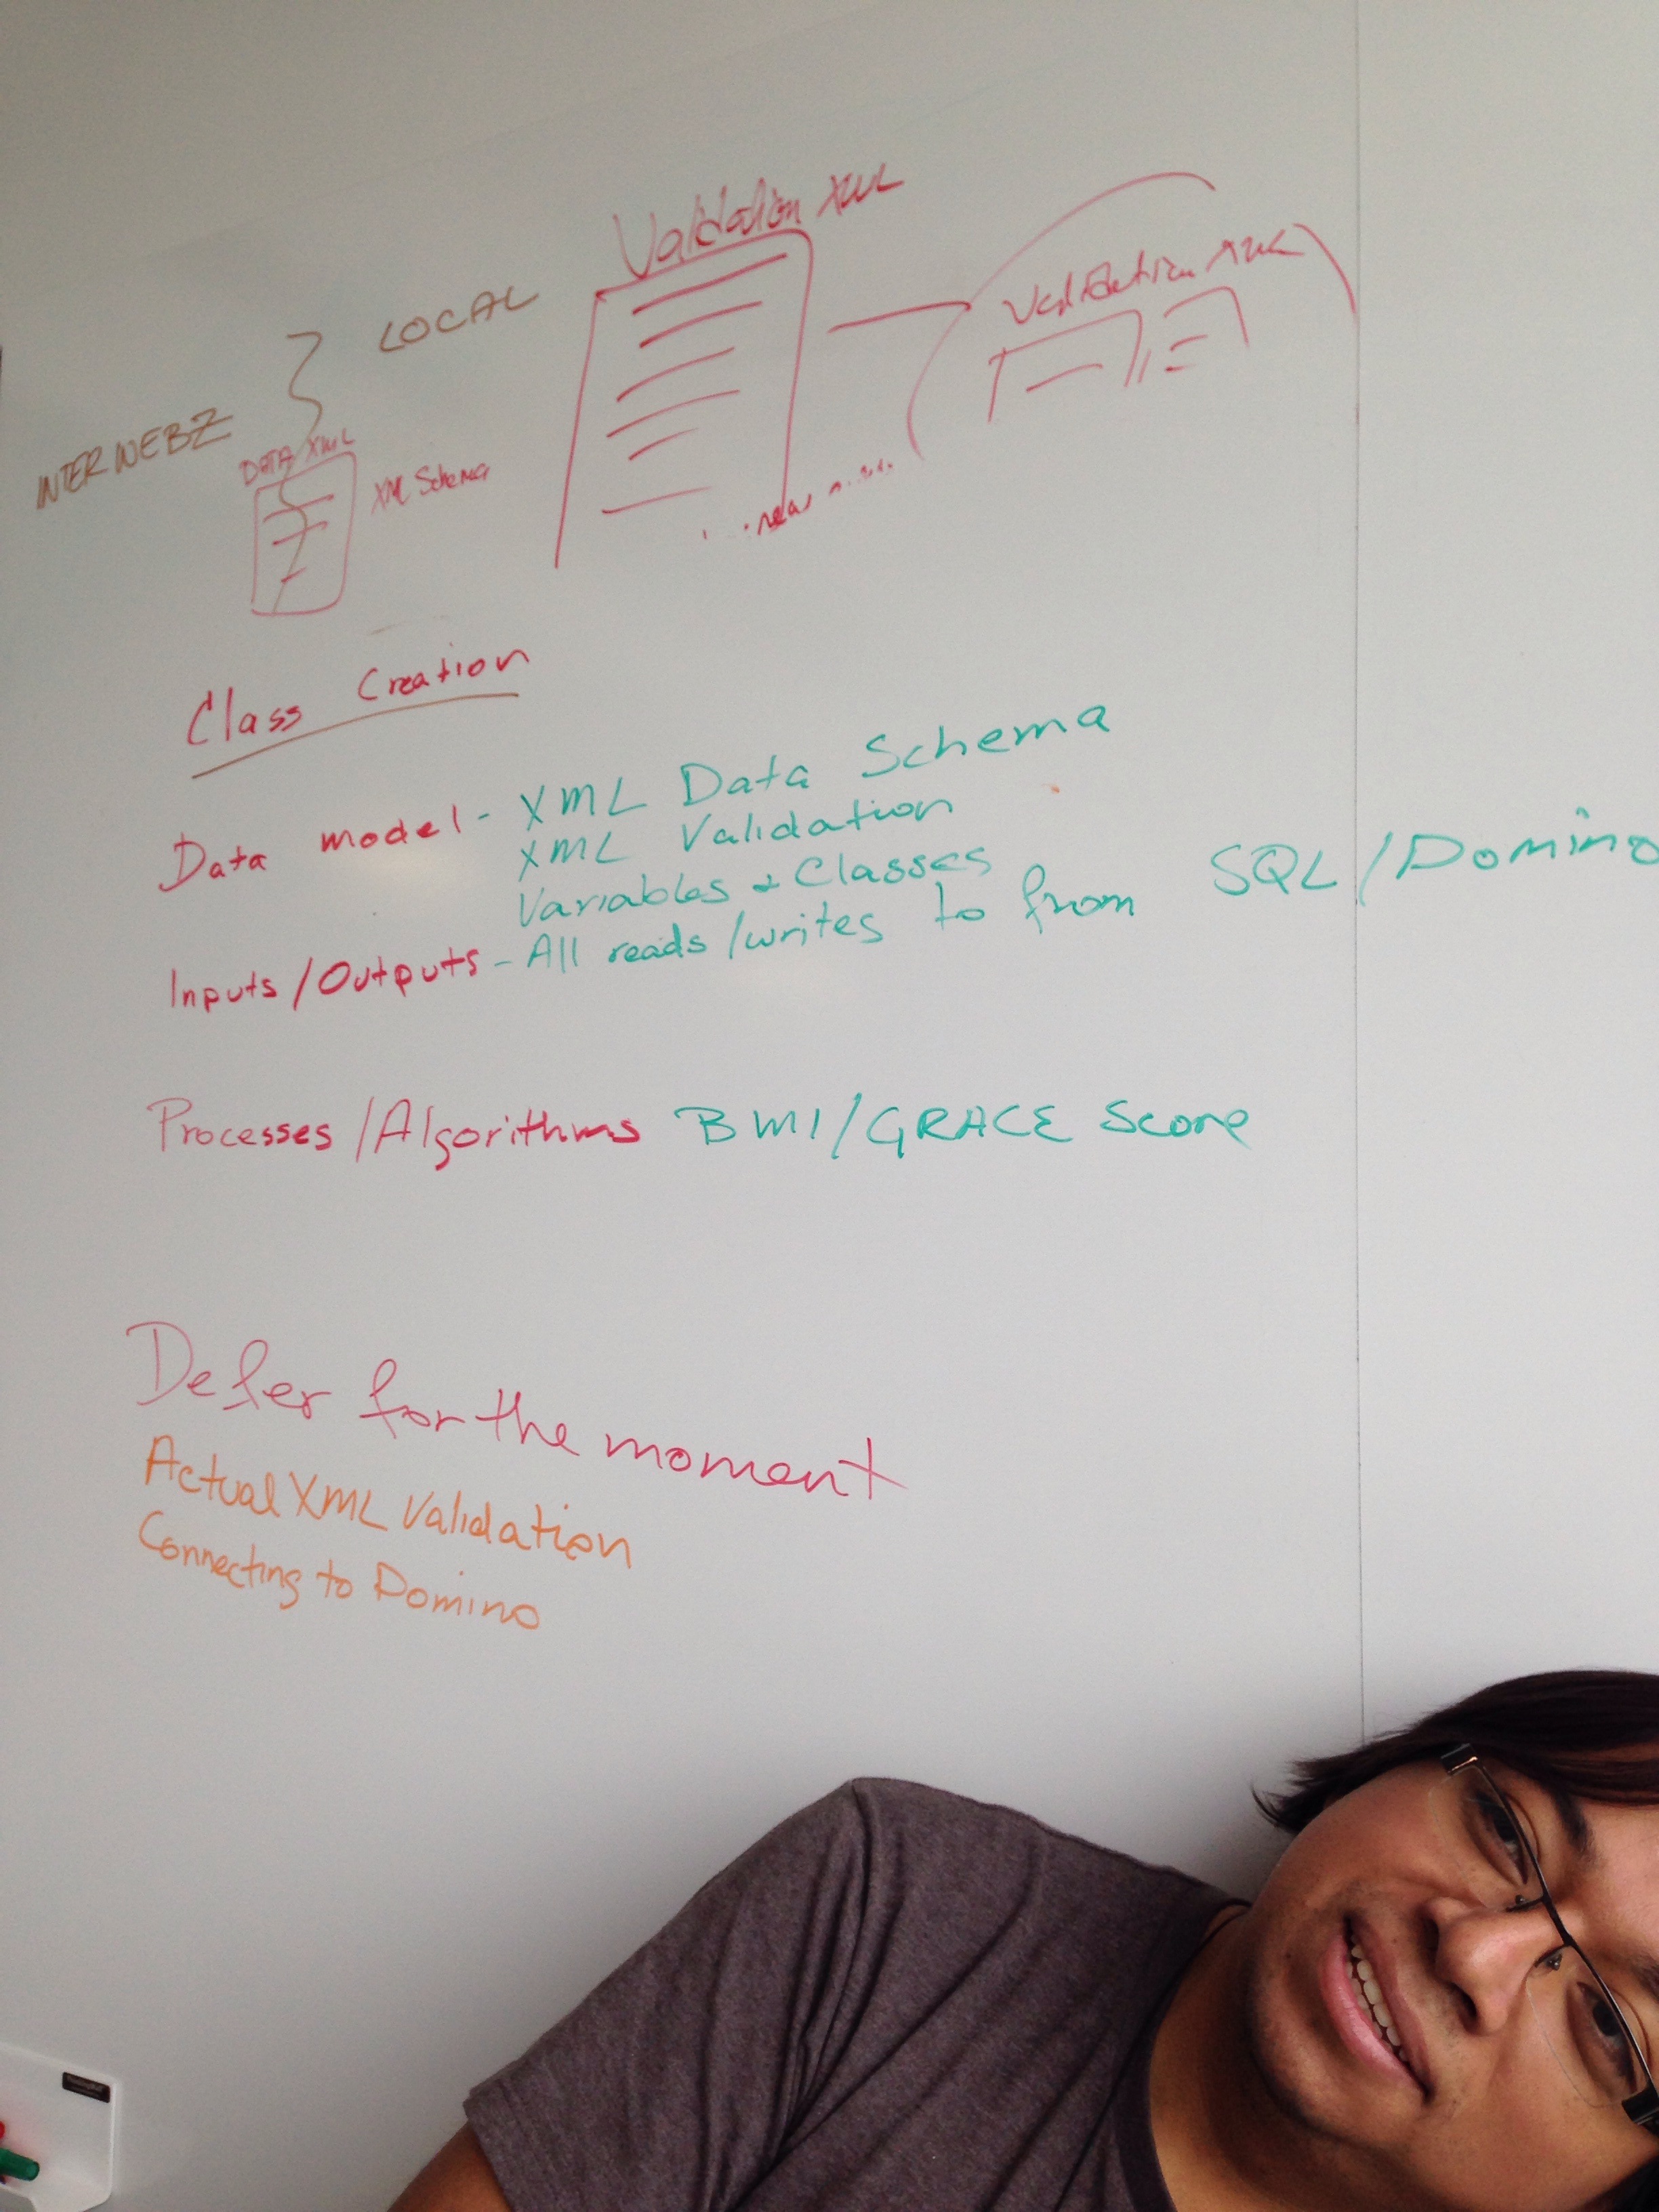 Validation XML
Validation XML
INTERNEBZ
LOCAL
DATA XML
XML Schema
Class Creation
Data model - XML Data Schema
XML Validation
Variables + Classes
Inputs/Outputs - All reads/writes to from SQL/Domino
Processes/Algorithms BMI/GRACE Score
Defer for the moment
Actual XML Validation
Connecting to Domino